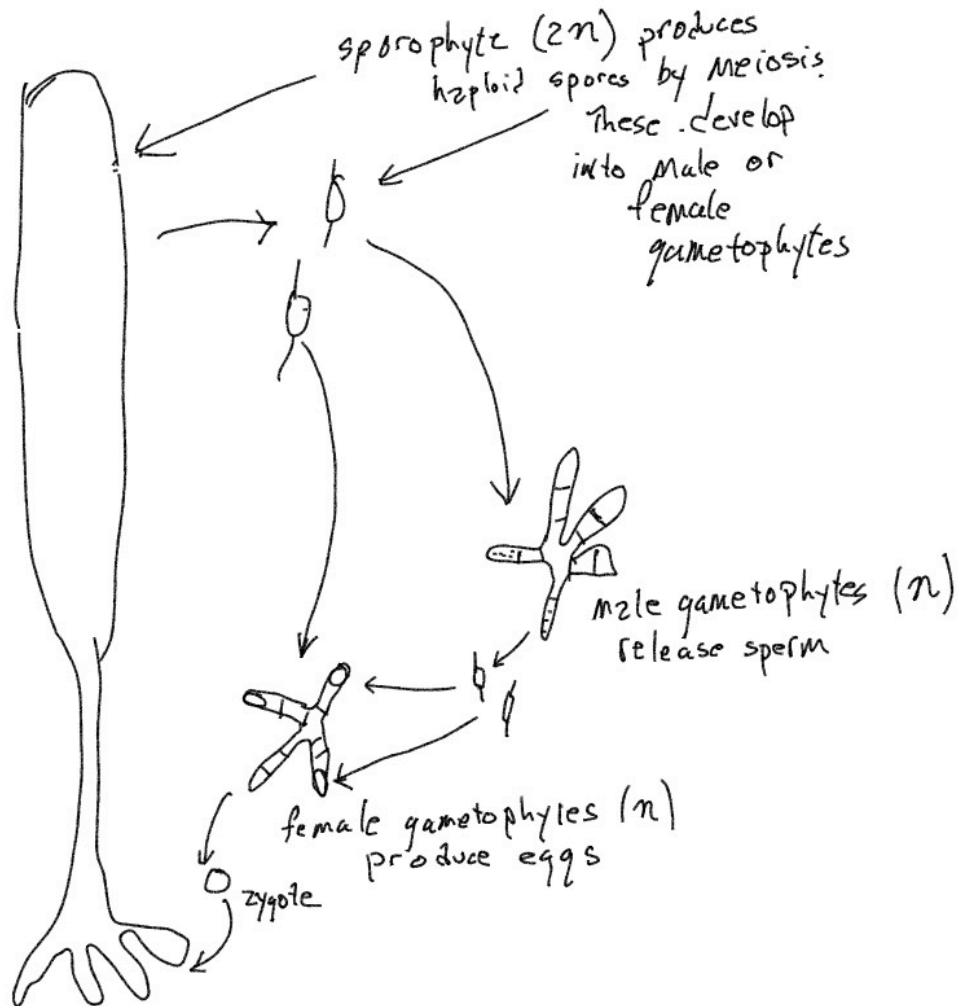 sporophyte (2n) produces
haploid spores by meiosis.
These develop
into male or
female
gametophytes
male gametophytes (n)
release sperm
female gametophytes (n)
produce eggs
zygote